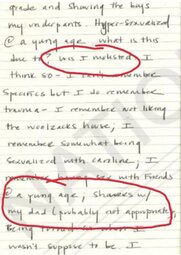 grade and showing the boys
my underpants. Hyper-sexualized
@ a young age. What is this
due to? Was I molested. I
think so - I can't remember
specifics but I do remember
trauma - I remember not liking
the house; I
remember somewhat being
sexualized with Caroline; I
remember having sex with friends
@ a young age; showers w/
my dad (probably not appropriate)
Being turned on when I
wasn't suppose to be. I